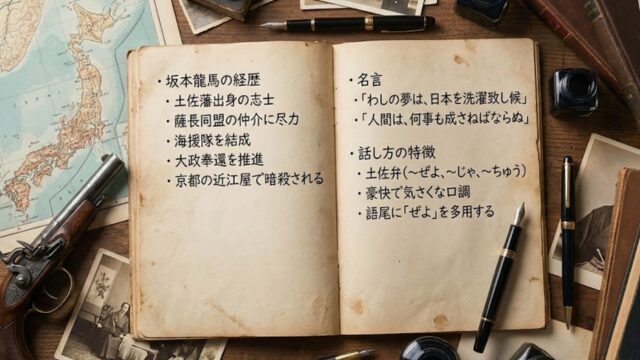 ・坂本龍馬の経歴
・土佐藩出身の志士
・薩長同盟の仲介に尽力
・海援隊を結成
・大政奉還を推進
・京都の近江屋で暗殺される
・名言
・「わしの夢は、日本を洗濯致し候」
・「人間は、何事も成さねばならぬ」
・話し方の特徴
・土佐弁(〜ぜよ、〜じゃ、〜ちゅう)
・豪快で気さくな口調
・語尾に「ぜよ」を多用する